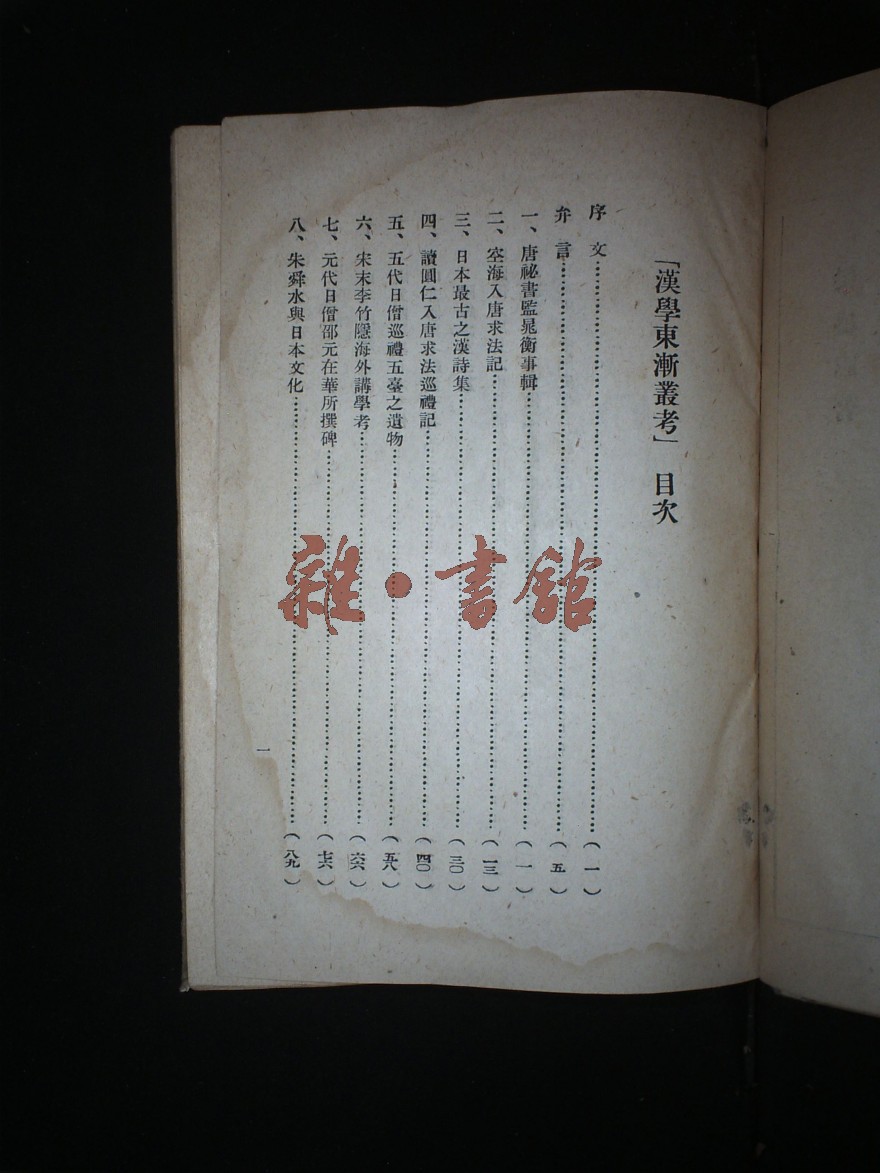 「漢學東漸叢考」 目次
序 文……………………………(一)
弁 言……………………………(五)
一、唐祕書監晁衡事輯……………………………(一)
二、空海入唐求法記……………………………(一三)
三、日本最古之漢詩集……………………………(三〇)
四、讀圓仁入唐求法巡禮記……………………………(四〇)
五、五代日僧巡禮五臺之遺物……………………………(五八)
六、宋末李竹隱海外講學考……………………………(六六)
七、元代日僧邵元在華所撰碑……………………………(七六)
八、朱舜水與日本文化……………………………(八九)
一
雜·書館